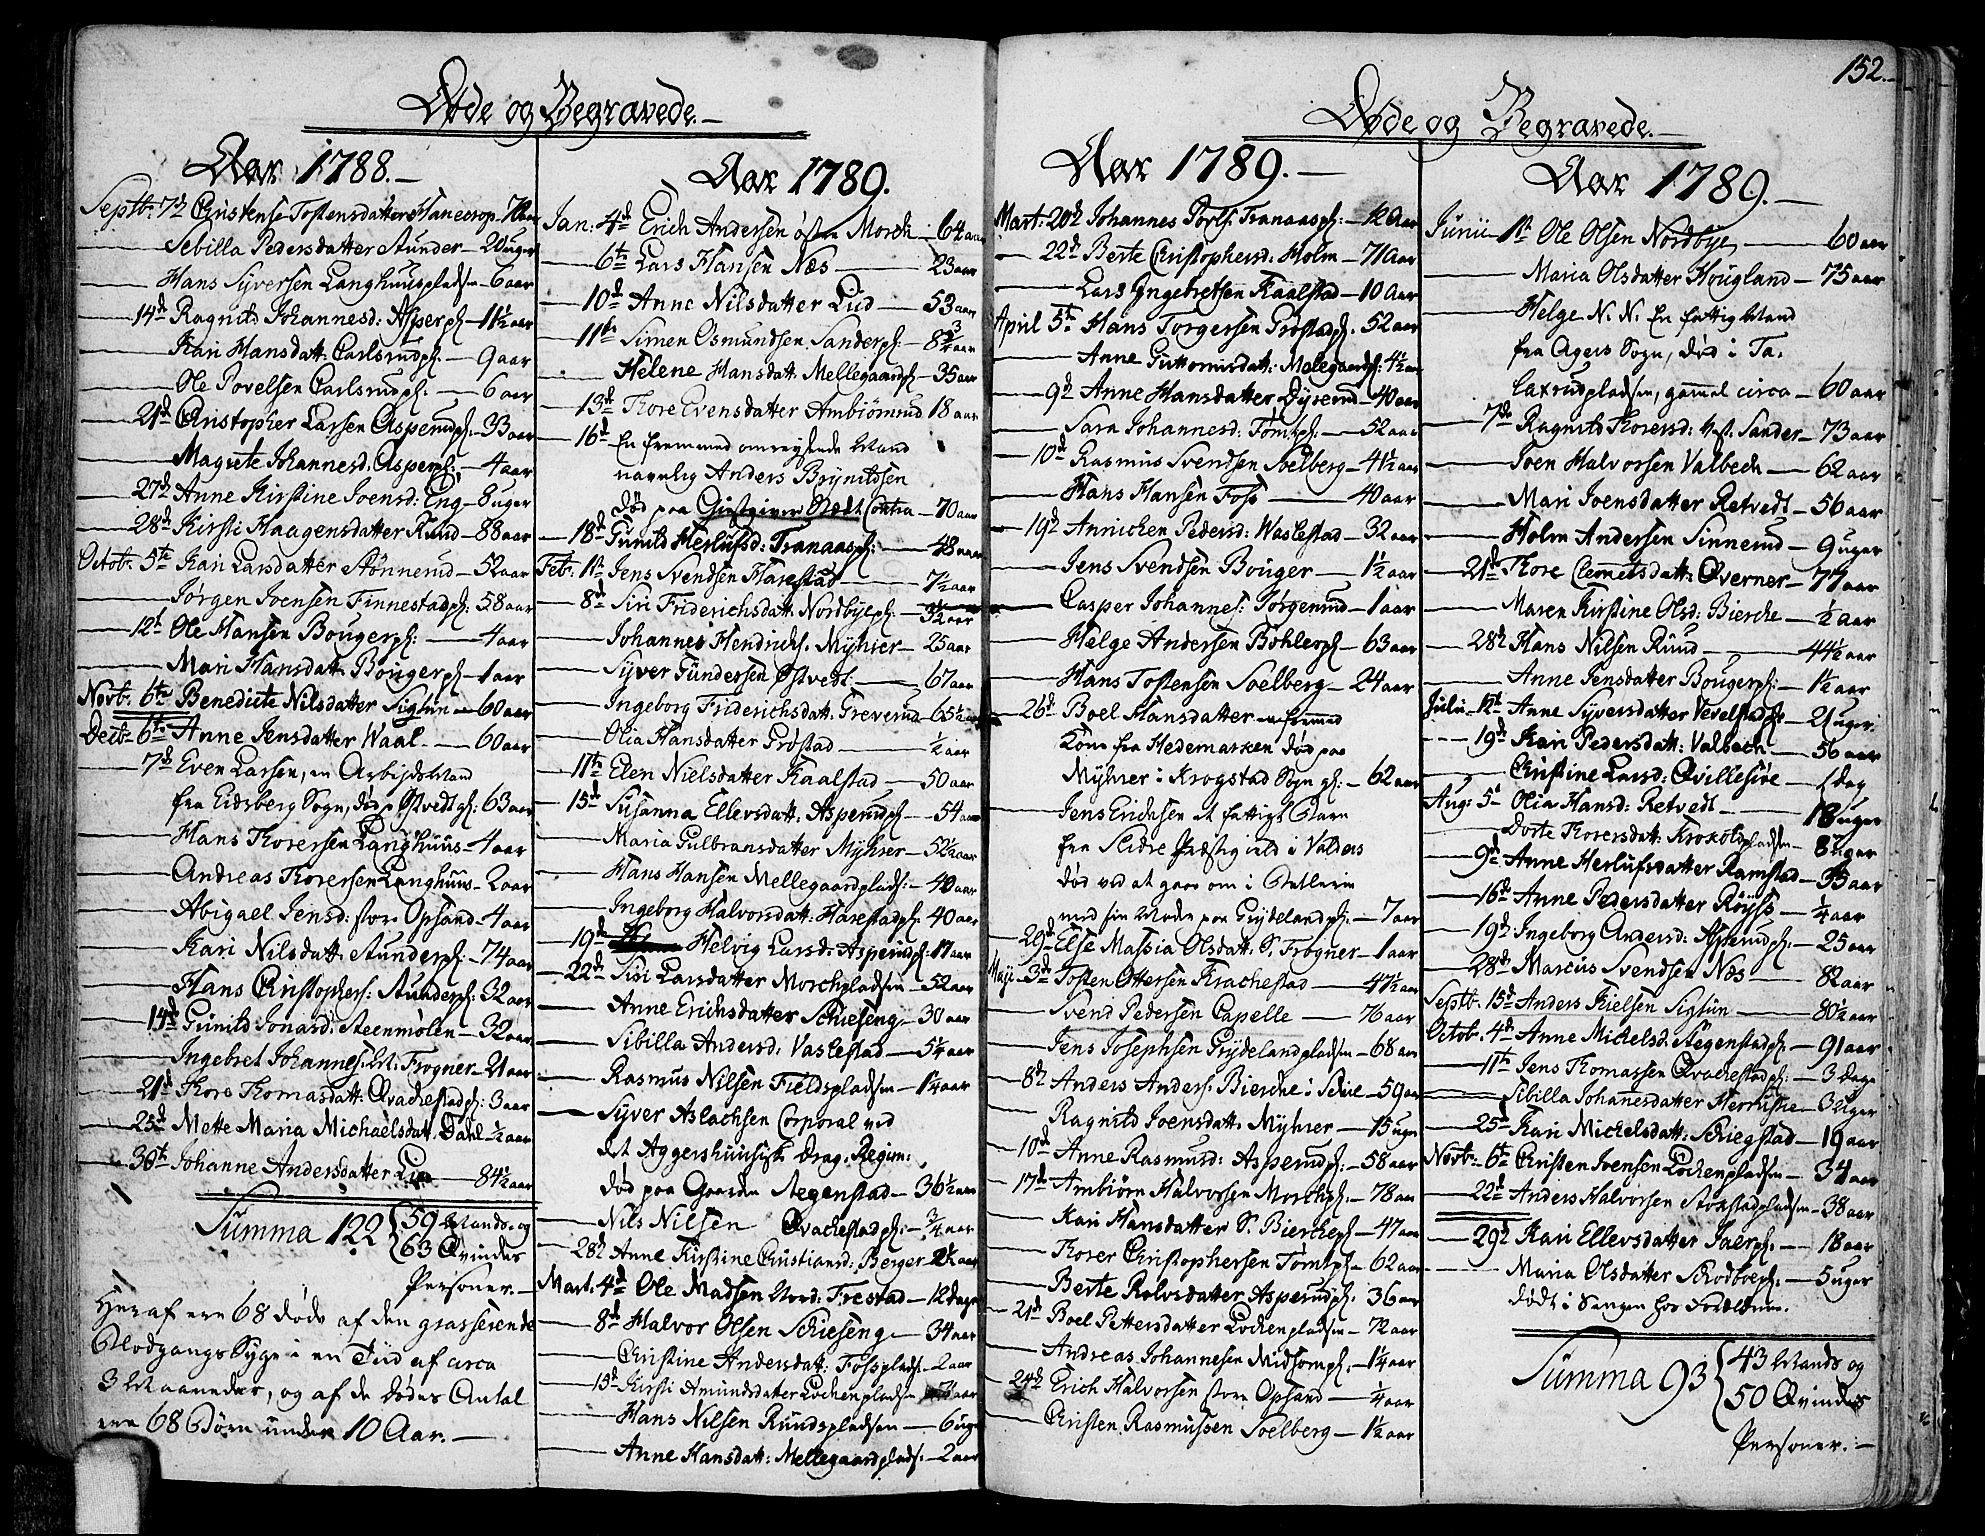 152.
Døde og Begravede.
Aar 1788.
Septb: 7d Christense Tostensdatter Haneorop 7 aar
Sebilla Pedersdatter Aunder 20 uger
Hans Syversen Langhuuspladsen 6 aar
14d Ragnild Johannesd: Asperpl: 11½ aar
Kari Hansdatt: Carlsrudpl: 9 aar
Ole Povelsen Carlsrudpl: 6 aar
21d Christopher Larsen Asperudpl: 33 aar
Magrete Johannesd: Asperpl: 4 aar
27d Anne Kirstine Joensd: Eng 8 uger
28d Kirsti Haagensdatter Ruud 88 aar
Octob: 5te Kari Larsdatter Stønnerud 52 aar
Jørgen Joensen Finnestadpl: 58 aar
12t Ole Hansen Bougerpl: 4 aar
Mari Hansdatt: Bougerpl: 1 aar
Novb: 6te Benedicte Nilsdatter Sigsun 60 aar
Decb: 6te Anne Jensdatter Waal 60 aar
7d Even Larsen, en Arbejdsmand
fra Eidsberg Sogn, død p: Østvedt gl: 63 aar
Hans Thoresen Langhuus 4 aar
Andreas Thoresen Langhuus 2 aar
Abigael Jensd: store Opsand 4 aar
Kari Nilsdatt: Aunderpl: 74 aar
Hans Christophers: Aunderpl: 32 aar
14d Gunild Jonasd: Steenmølen 32 aar
Ingebret Johannes: Frogner 21 aar
21d Thore Thomasdatt: Qvachestadpl: 3 aar
25d Mette Maria Michaelsdatt: Dahl ½ aar
30te Johanne Andersdatter Lie 84½ aar
Summa 122 59 Mands- og
63 Qvindes
Personer.
Heraf ere 68 døde af den grasserende
Blodgangs Syge i en Tiid af circa
3 Maaneder, og af de dødes Antal
ere 68 Børn under 10 Aar.
Aar 1789.
Jan: 4d Erich Andersen østen Morch 64 aar
6te Lars Hansen Næs 23 aar
10d Anne Nilsdatter Lud 53 aar
11te Simen Osmundsen Sanderpl: 8¾ aar
Helene Hansdatt: Mellegaardpl: 35 aar
13d Thore Evensdatter Ambiörnrud 18 aar
16d En fremmed omrejsende Mand
navnlig Anders Brynildsen
død paa Giestgiver Stædet Contra 70 aar
18d Gunild Herlufsd: Tranaaspl: 48 aar
Febr: 1te Jens Svendsen Harestad 7½ aar
8d Siri Friderichsdatt: Nordbyepl: 3½ aar
Johannes Hendrichs: Myhrer 25 aar
Syver Gundersen Østvedt 67 aar
Ingeborg Friderichsdatt: Greverud 65½ aar
Olia Hansdatter Prøstad ½ aar
11te Elen Nielsdatter Kaalstad 50 aar
15d Susanna Ellevsdatt: Asperudpl: 54 aar
Maria Gulbransdatter Myhrer 52½ aar
Hans Hansen Mellegaardplads: 40 aar
Ingeborg Halvorsdatt: Harestadpl: 40 aar
19d Helvig Larsd: Asperudpl: 17 aar
22d Siri Larsdatter Morchpladsen 52 aar
Anne Erichsdatter Schieseng 30 aar
Sibilla Andersd: Vaslestad 5¼ aar
Rasmus Nilsen Fieldspladsen 1¼ aar
Syver Aslachsen Corporal ved
det Aggershuusiske Drag: Regim:
død paa Gaarden Aegenstad 36½ aar
Nils Nilsen Qvachestadpl: ¾ aar
28d Anne Kirstine Christiansd: Berger 2½ aar
Mart: 4d Ole Madsen Nord: Frestad 12 dage
8d Halvor Olsen Schieseng 34 aar
Christine Andersdatt: Fosspladsen 2 aar
15d Kirsti Amundsdatter Lochenpladsen aar
Hans Nilsen Ruudspladsen 6 uger
Anne Hansdatt: Mellegaardplads: 2 aar
Døde og Begravede.
Aar 1789.
Mart: 20d Johannes Torls: Tranaaspl: 12 Aar
22d Berte Christophersd: Holm 71 Aar
Lars Ingebretsen Kaalstad 10 Aar
April 5te Hans Torgersen Prøstadpl: 52 aar
Anne Guttormsdatt: Melegaardpl: 4½ aar
9d Anne Hansdatter Dyrerud 40 aar
Sara Johannesd: Tømtpl: 52 aar
10d Rasmus Svendsen Soelberg 4½ aar
Hans Hansen Foss 40 aar
19d Annichen Pedersd: Waslestad 32 aar
Jens Svendsen Bouger 1½ aar
Casper Johannes: Jørgenrud 1 aar
Helge Andersen Bøhlerpl: 63 aar
Hans Tostensen Soelberg 24 aar
26d Boel Hansdatter en fremmed
Kone fra Hedemarken død paa
Myhrer i Krogstad Sogn gl: 62 aar
Jens Erichsen et fattigt Barn
fra Slidre Præstegield i Valders
død ved at gaae om i Betlerie
med sin Moder paa Grydelandpl: 7 aar
29d Else Massia Olsdatt: S. Frogner 1 aar
Maji 3d Tosten Ottersen Krachestad 47½ aar
Svend Pedersen Capelle 76 aar
Jens Josephsen Grydelandpladsen 68 aar
8d Anders Anders: Bierche i Schie 59 aar
Ragnild Joensdatt: Myhrer 15 uger
10d Anne Rasmusd: Asperudpl: 58 aar
17d Ambiörn Halvorsen Morchpl: 78 aar
Kari Hansdatter S. Bierchepl: 47 aar
Thorer Christophersen Tømtpl: 62 aar
Berte Rolvsdatter Asperudpl: 36 aar
21d Boel Pettersdatter Lochenpladsen 72 aar
Andreas Johannesen Midsompl: 1¼ aar
24d Erich Halvorsen store Opsand ¼ aar
Christen Rasmussen Soelberg 1½ aar
Aar 1789.
Junii 1te Ole Olsen Nordbye 60 aar
Maria Olsdatter Hougland 75 aar
Helge N. N. En fattig Mand
fra Agers Sogn, død i Ta-
laxrudpladsen, gammel circa 60 aar
7de Ragnild Thoresd: Sander 73 aar
Joen Halvorsen Valbech 62 aar
Mari Joensdatter Retvedt 56 aar
Holm Andersen Sinnerud 9 uger
21d Thore Clemetsdatt: Qverner 77 aar
Maren Kirstine Olsd: Bierche ½ aar
28d Hans Nilsen Ruud 44½ aar
Anne Jensdatter Bougerpl: 1½ aar
Julii 12t Anne Syversdatter Vevelstadpl: 2 uger
19d Kari Pedersdatt: Valbech 56 aar
Christine Larsd: Qvillesiøe 1 dag
Aug: 5t Olia Hansd: Retvedt 18 uger
Dorte Thorersdatt: Krokolspladsen 8 uger
9d Anne Herlufsdatter Ramstad 35 aar
16de Anne Pedersdatter Röyss ¼ aar
19d Ingeborg Andersd: Asperudpl: 25 aar
28d Marcus Svendsen Næs 82 aar
Septb: 15d Anders Kielsen Sigsun 80½ aar
Octob: 4d Anne Michelsd: Aegenstadpl: 91 aar
11te Jens Thomassen Qvachestadpl: 3 dage
Sibilla Johannesdatter 3 uger
25d Kari Michelsdatt: Schiegstad 19 aar
Novb: 6te Christen Ivensen Lochenpladsen 34 aar
22d Anders Halvorsen Stoxstadpladsen 38 aar
29d Kari Ellevsdatter Jaerpl: 18 aar
Maria Olsdatter Schodboepl: 5 uger
dødt i Sengen hos Forældrene.
Summa 93 43 Mands og
50 Qvindes
Personer.